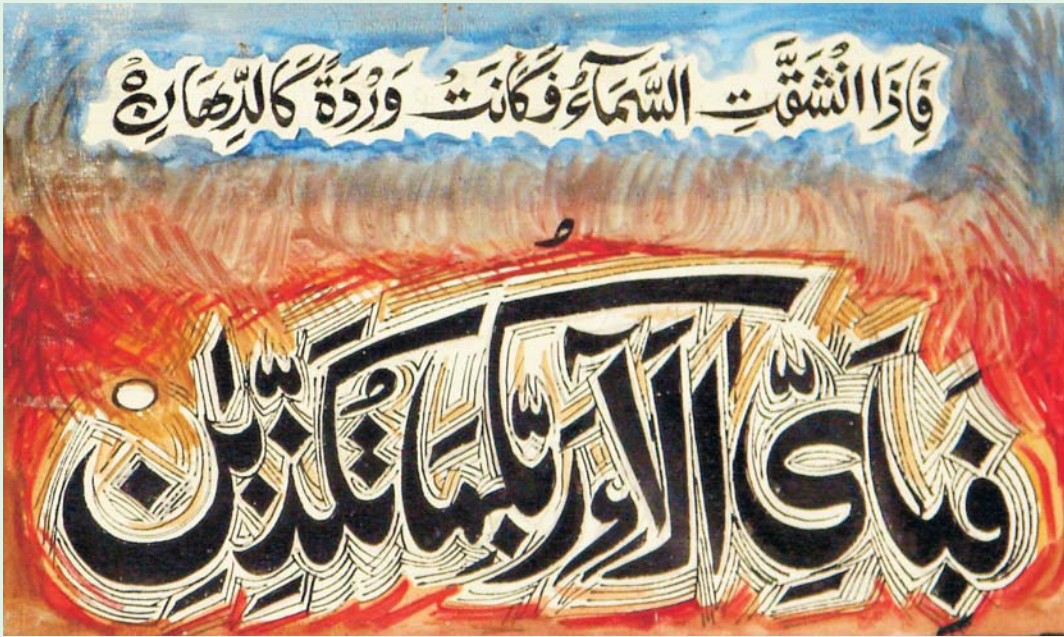 فَاِذَا انْشَقَّتِ السَّمَآءُ فَكَانَتْ وَرْدَةً كَالدِّهَانِ ۚ
فَبِاَىِّ اٰلَآءِ رَبِّكُمَا تُكَذِّبٰنِ